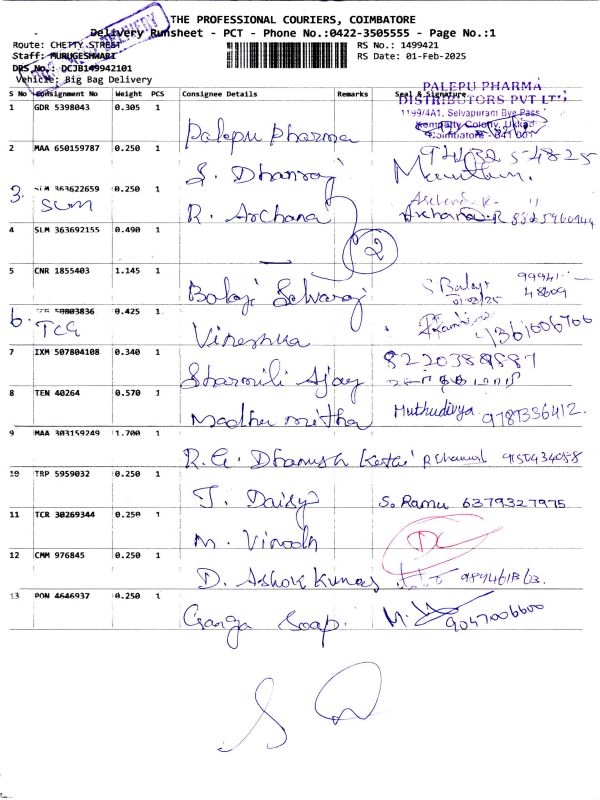 THE PROFESSIONAL COURIERS, COIMBATORE
Delivery Runsheet - PCT - Phone No.:0422-3505555 - Page No.:1
Route: CHETTY STREET
RS No.: 1499421
Staff: MURUGESHWARI
RS Date: 01-Feb-2025
DRS No.: DCJB149942101
Vehicle: Big Bag Delivery
DELIVERY
S No Consignment No Weight PCS Consignee Details Remarks Seal & Signature
PALEPU PHARMA
DISTRIBUTORS PVT LTD
1199/4A1, Selvapuram Bye Pass
Kempatty Colony, Ukkad
Coimbatore - 641 001
1 GDR 5398043 0.305 1 Palepu Pharma
2 MAA 650159787 0.250 1 S. Dhanraj
3. SLM 363622659 0.250 1 R. Archana Archana.R
SLM
4 SLM 363692155 0.490 1 2
5 CNR 1855403 1.145 1 Balaji Selvaraj S Balaji 99941 48609
01/02/25
6. TCG 50803836 0.425 1
TCG
7 IXM 507804108 0.340 1 Sharmili Ajay
8 TEN 40264 0.570 1 Madhu mitha Muthudivya 9787336412.
9 MAA 303159249 1.700 1 R.G. Dhanush
10 TRP 5959032 0.250 1 J. Daisy S. Ramu 6379327975
11 TCR 30269344 0.250 1 M. Vinodh DC
12 CMM 976845 0.250 1 D. Ashok Kumar
13 PON 4646937 0.250 1 Ganga Soap. M. 9047006600